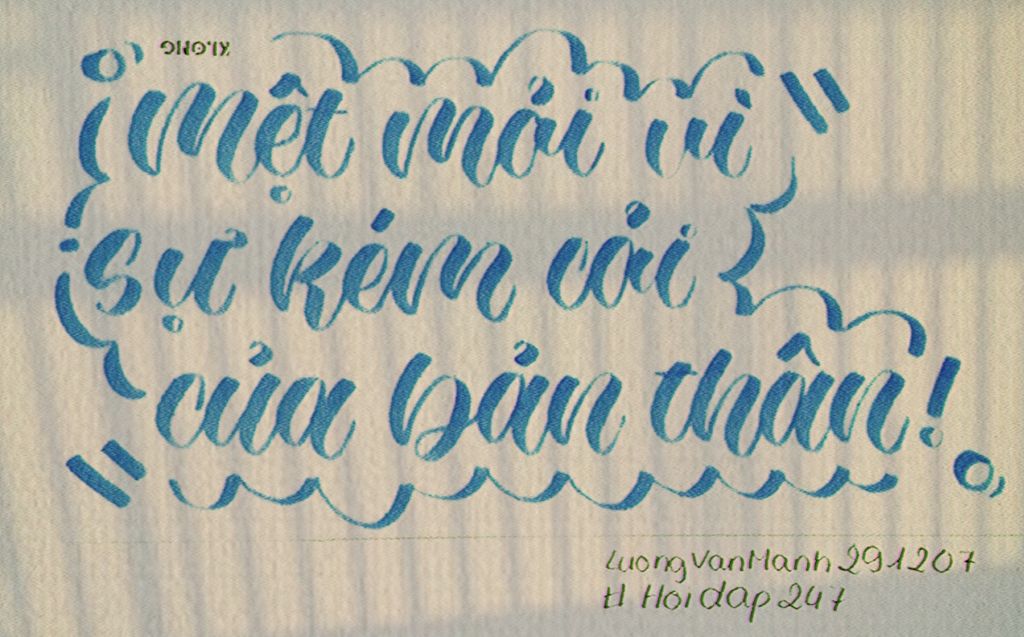 KLONG
Mệt mỏi vì
sự kém cỏi
của bản thân!
LuongVanManh291207
H Hoidap247